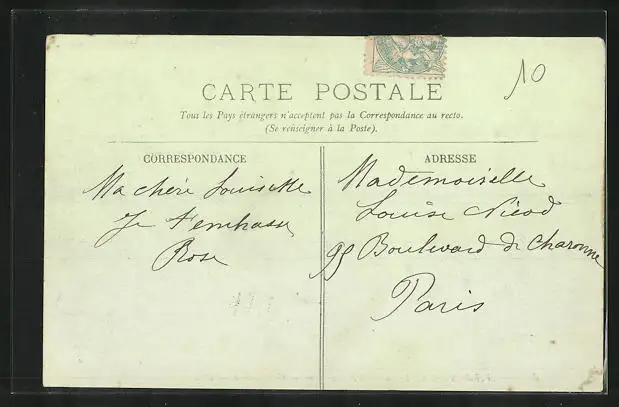 10
CARTE POSTALE
Tous les Pays étrangers n'acceptent pas la Correspondance au recto.
(Se renseigner à la Poste).
CORRESPONDANCE
Ma chère Louisette
Je t'embrasse
Rose
ADRESSE
Mademoiselle
Louise Nicod
95 Boulevard de Charonne
Paris